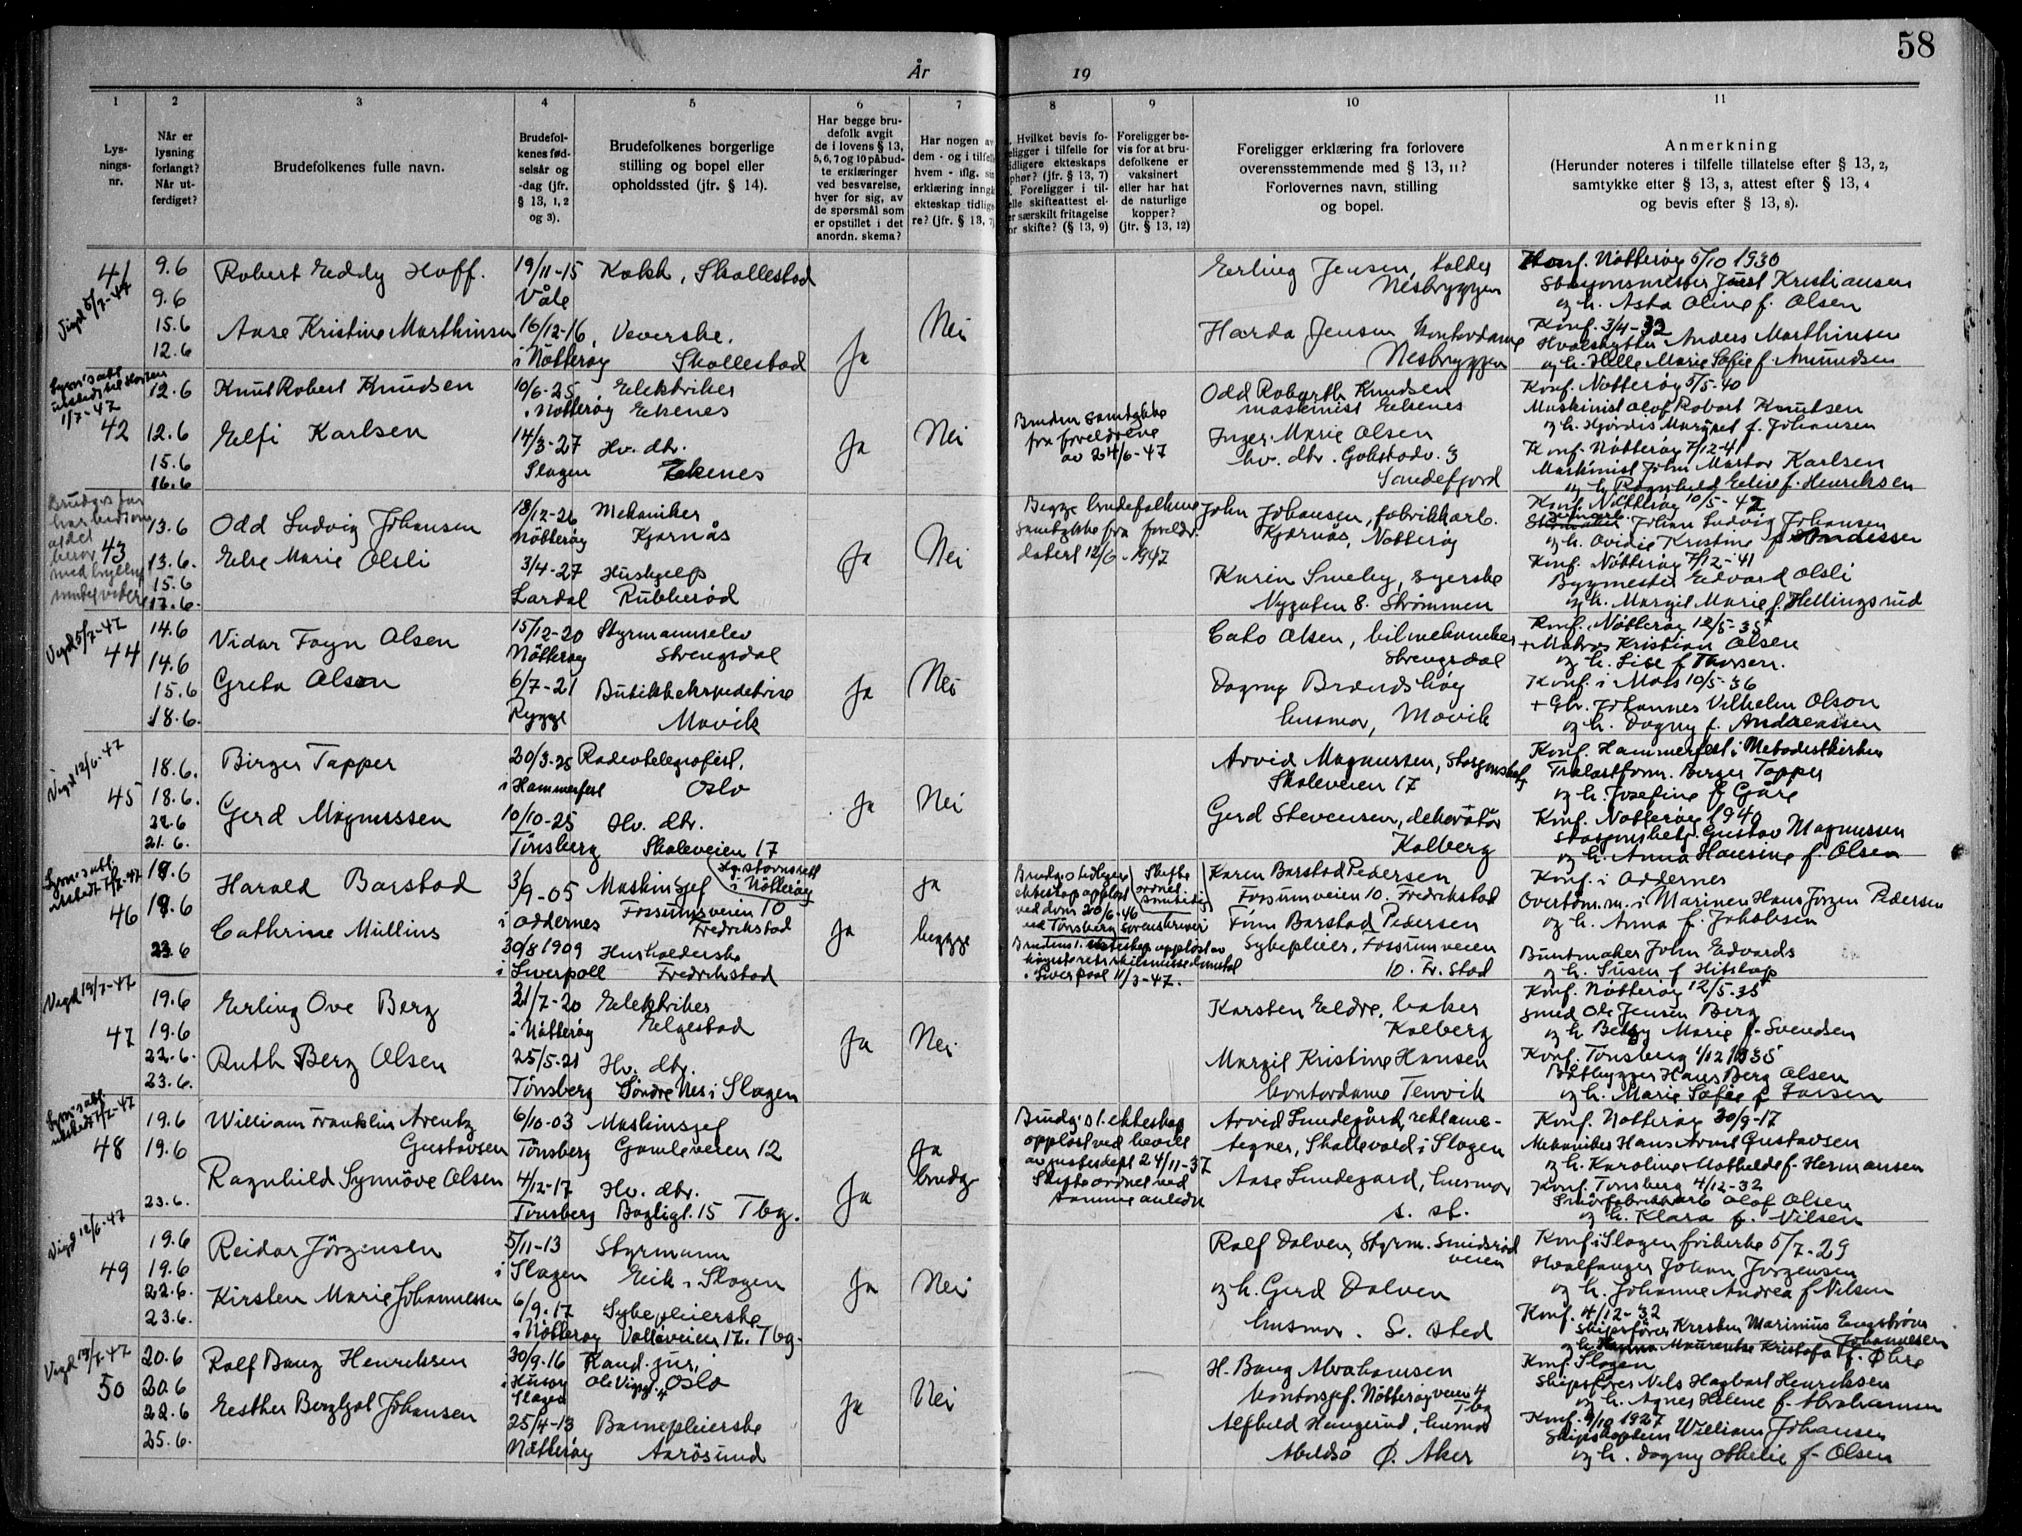 58
År
19
1
2
3
4
5
6
7
8
9
10
11
Lys-
nings-
nr.
Når er
lysning
forlangt?
Når ut-
ferdiget?
Brudefolkenes fulle navn.
Brudefol-
kenes fød-
selsår og
-dag (jfr.
§ 13, 1, 2
og 3).
Brudefolkenes borgerlige
stilling og bopel eller
opholdssted (jfr. § 14).
Har begge bru-
defolk avgit
de i lovens § 13,
5, 6, 7 og 10 påbud-
te erklæringer
ved besvarelse,
hver for sig, av
de spørsmål som
er opstillet i det
anordn. skema?
Har nogen av
dem - og i tilfelle
hvem - iflg. sin
erklæring inngk
ekteskap tidlige
re? (jfr. § 13, 7)
Hvilket bevis fo-
religger i tilfelle for
idligere ekteskaps
phør? (jfr. § 13, 7)
Foreligger i til-
elle skifteattest el-
er særskilt fritagelse
or skifte? (§ 13, 9)
Foreligger be-
vis for at bru-
defolkene er
vaksinert
eller har hat
de naturlige
kopper?
(jfr. § 13, 12)
Foreligger erklæring fra forlovere
overensstemmende med § 13, 11?
Forlovernes navn, stilling
og bopel.
Anmerkning
(Herunder noteres i tilfelle tillatelse efter § 13, 2,
samtykke efter § 13, 3, attest efter § 13, 4
og bevis efter § 13, 8).
41
Vigd 5/7-47
9.6
9.6
15.6
12.6
Robert Eddy Hoff.
Aase Kristine Marthinsen
19/11-15
Våle
16/12-16
i Nøtterøy
Kokk, Skallestad
Veverske.
Skallestad
Ja
Nei
Erling Jensen, tolder
Nesbryggen
Harda Jensen kontordame
Nesbryggen
Konf. Nøtterøy 5/10 1930
Stasjonsmester Juul Kristiansen
og h. Asta Oline f. Olsen
Konf. 3/4-32
Hvalskytter Anders Marthinsen
og h. Hilla Marie Sofie f. Amundsen
1/7-47
42
12.6
12.6
15.6
16.6
Knut Robert Knudsen
Elfi Karlsen
10/6-25
i Nøtterøy
14/3-27
Slagen
Elektriker
Ekenes
Hv. dtr.
Ekenes
Ja
Nei
Bruden samtykke
fra foreldrene
av 24/6-47
Odd Robarth Knudsen
maskinist Ekenes
Inger-Marie Olsen
hv. dtr. Gokstadv. 3
Sandefjord
Konf. Nøtterøy 5/5-40
Maskinist Olof Robert Knutsen
og h. Hjørdis Margret f. Johansen
Konf. Nøtterøy 7/12-41
Maskinist John Martor Karlsen
og h. Ragnhild Elise f. Henriksen
43
13.6
13.6.
15.6
17.6.
Odd Ludvig Johansen
Else Marie Olsli
18/12-26
Nøtterøy
3/4-27
Lardal
Mekaniker
Kjørnås
Hushjelp
Rubberød
Ja
Nei
Begge brudefolkene
samtykke fra foreldr.
datert 12/6-1947
John Johansen, fabrikkarb.
Kjørnås, Nøtterøy
Karin Smeby, syerske
Nygaten 8. Strømmen
Konf. Nøtterøy 10/5-42
Johan Ludvig Johansen
og h. Ovidie Kristine f. Andersen
Konf. Nøtterøy 7/12-41
Byggmester Edvard Olsli
og h. Margit Marie f. Hellingsrud
Vigd 5/7-47
44
14.6
14.6
15.6
18.6.
Vidar Foyn Olsen
Greta Olsen
15/12-20
Nøtterøy
6/7-21
Rygge
Styrmannselev
Strengsdal
Butikkekspeditrise
Movik
Ja
Nei
Cato Olsen, bilmekaniker
Strengsdal
Dagny Brandshøy
husmor, Movik
Konf. Nøtterøy 12/5-35
+ Matros Kristian Olsen
og h. Lise f. Thorsen.
Konf. i Moss 10/5-36
+ Gbr. Johannes Vilhelm Olson
og h. Dagny f. Andreassen
Vigd 12/6-47
45
18.6.
18.6.
21.6.
Birger Tapper
Gerd Magnussen
20/3-25
i Hammerfest
10/10-25
Tønsberg
Radiotelegrafist.
Oslo
Hv. dtr.
Skoleveien 17
Ja
Nei
Arvid Magnussen, Stasjonsbetj.
Skoleveien 17
Gerd Stevensen, dekoratør
Kolberg
Konf. Hammerfest i Metodistkirken
Trelastform. Berger Tapper
og h. Josefine f. Gåre
Konf. Nøtterøy 1940
Stasjonsbetj. Gustav Magnussen
og h. Anna Hansine f. Olsen
46
18.6
18.6
23.6
Harald Barstad
Cathrine Mullins
3/9-05
i Oddernes
30/8 1909
i Liverpoll
Maskinsjef
i Nøtterøy
Fossumsveien 10
Fredrikstad
Husholderske
Fredrikstad
Ja
Ja
begge
Brudg.s tidligere
ekteskap oppløst
ved dom 20/6-46
ved Tønsberg Sorenskriveri
Skifte
ordnet
samtidig
Brudens 1. ekteskap oppløst av
i Liverpool 11/3-47.
Karen Barstad Pedersen
Fossumveien 10. Fredrikstad
Finn Barstad Pedersen
Sykepleier, Fossumveien
10. Fr.stad
Konf. i Oddernes
Overtøm.m. i Marinen Hans Jørgen Pedersen
og h. Anna f. Jakobsen
Buntmaker John Edvards
og h. Susen f. Hitslop
Vigd 19/7-47
47
19.6
19.6
22.6.
23.6.
Erling Ove Berg
Ruth Berg Olsen
21/7-20
i Nøtterøy
25/5-21
Tønsberg
Elektriker
Elgestad
Hv. dtr.
Søndre Nes i Slagen
Ja
Nei
Karsten Eldre, baker
Kolberg
Margit Kristine Hansen
kontordame Tenvik
Konf. Nøtterøy 12/5-35
smed Ole Jensen Berg
og h. Betsy Marie f. Svendsen
Konf. Tønsberg 1/12 1935
Båtbygger Hans Berg Olsen
og h. Marie Sofie f. Larsen
48
19.6
19.6
23.6.
William Franklin Arentz
Gustavsen
Ragnhild Synnöve Olsen
6/10-03
Tønsberg
4/12-17
Tønsberg
Maskinsjef
Gamleveien 12
Hv. dtr.
Bagligt. 15 Tbg.
Ja
Ja
brudg
Brudg.s 1. ekteskap
oppløst ved bevill.
av justisdept 24/11-37
Skifte ordnet ved
samme anledn
Arvid Lundegård, reklame-
tegner, Skallevold i Slagen
Aase Lundegard, husmor
s. st.
Konf. Nøtterøy 30/9-17
Mekaniker Hans Arent Gustavsen
og h. Karoline Mathilde f. Hermansen
Konf. Tønsberg 4/12-32
Smörfabrikkarb Olof Olsen
og h. Klara f. Nilsen
Vigd 12/6-47
49
19.6
19.6
22.6.
23.6.
Reidar Jörgensen
Kirsten Marie Johannessen
5/11-13
i Slagen
6/9-17
i Nøtterøy
Styrmann
Eik i Slagen
Sykepleierske
Valløveien 17. Tbg.
Ja
Nei
Ralf Dalven, Styrm. Smidsrød
veien
og h. Gerd Dalven
husmor. S. sted
Konf. i Slagen frikirke 5/7-29
Hvalfanger Johan Jørgensen
og h. Johanne Andrea f. Nilsen
Konf. 4/12-32
Skipsfører Kristen Marinius Engstrøm
Johannesen
og h. Hanna Maurentse Kristofa f. Øhre
Vigd 13/7-47
50
20.6
20.6
22.6
25.6.
Ralf Bang Henriksen
Esther Bergljot Johansen
30/9-16
i Husøy
Slagen
25/4-13
Nøtterøy
Kand. jur.
Oslo
Barnepleierske
Aarösund
Ja
Nei
H. Bang Abrahamsen
Kontorsjef. Nøtterøyveien 4
Tbg
Alfhild Haugerud, husmor
Abildsö Ø. Aker
Konf. Slagen
Skipsfører Nils Hagbart Henriksen
og h. Agnes Helene f. Abrahamsen
Konf. 9/10 1927
Skipskaptein William Johansen
og h. Dagny Othelie f. Olsen